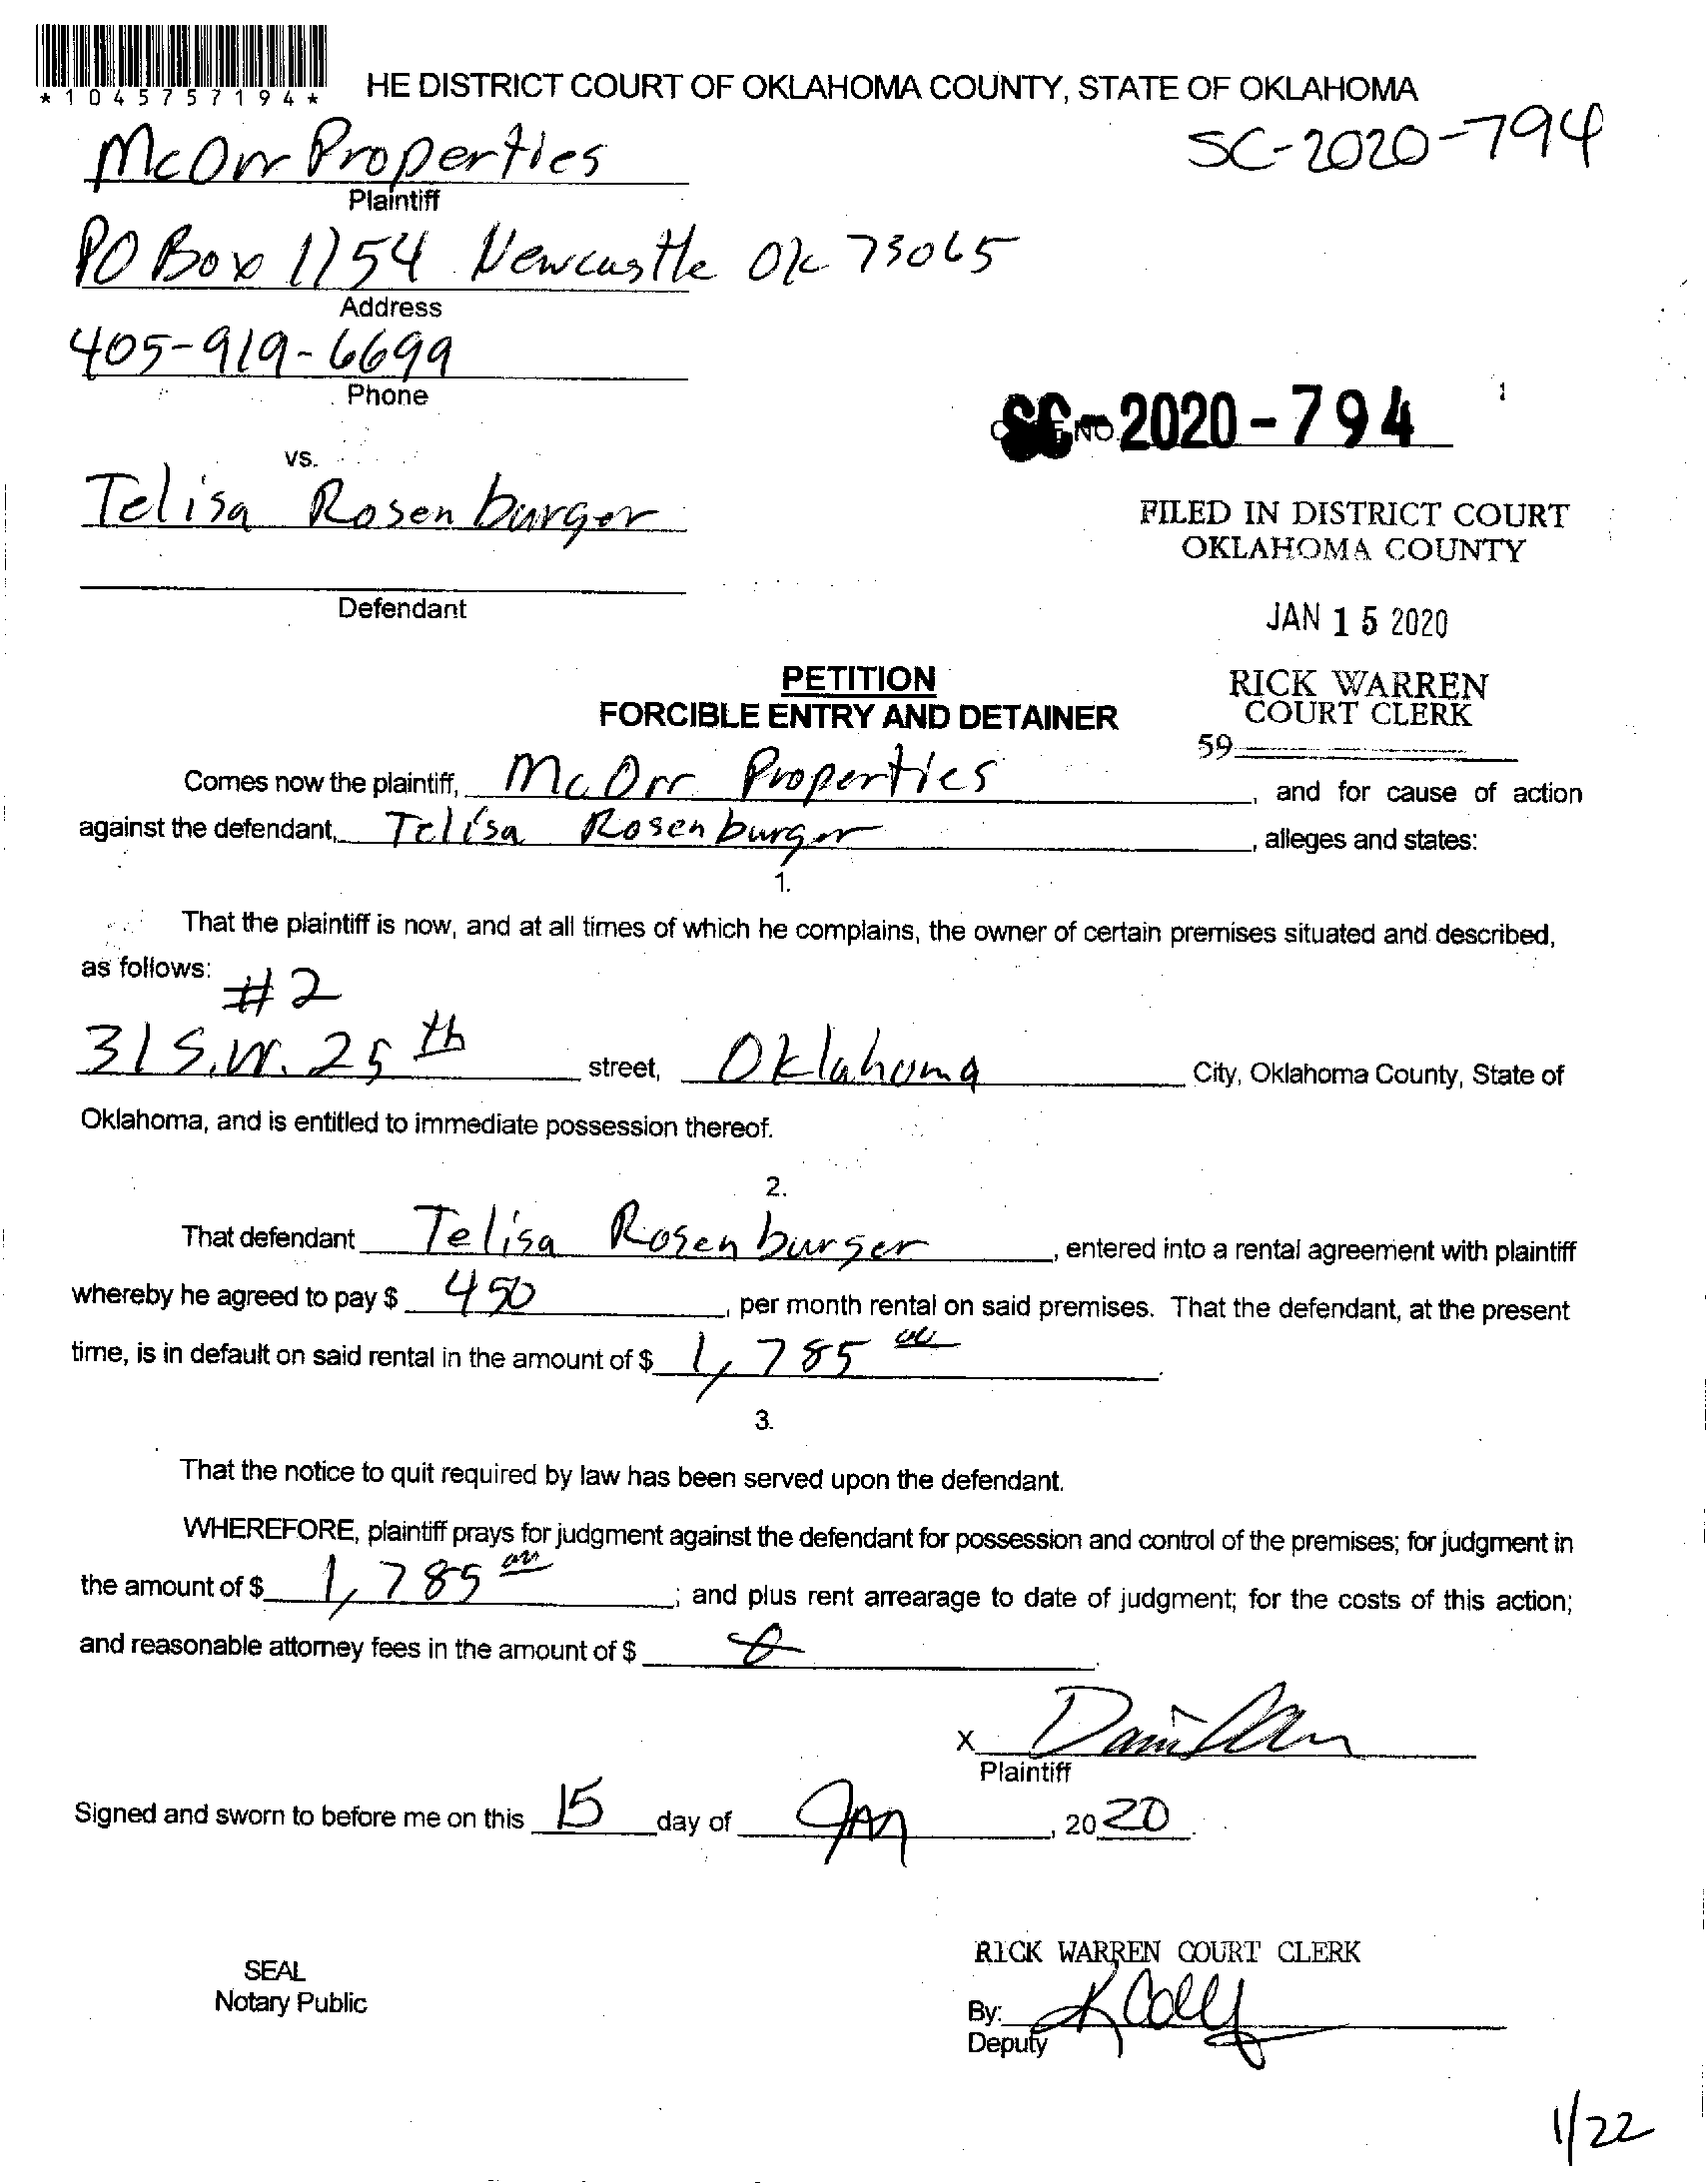 *1045757194*
HE DISTRICT COURT OF OKLAHOMA COUNTY, STATE OF OKLAHOMA
McOrr Properties
SC-2020-794
Plaintiff
PO Box 1154 Newcastle Ok 73065
Address
405-919-6699
Phone
SC-2020-794
vs.
Telisa Rosenburger
FILED IN DISTRICT COURT
OKLAHOMA COUNTY
Defendant
JAN 15 2020
PETITION
RICK WARREN
FORCIBLE ENTRY AND DETAINER
COURT CLERK
59
Comes now the plaintiff, McOrr Properties, and for cause of action
against the defendant, Telisa Rosenburger, alleges and states:
1.
That the plaintiff is now, and at all times of which he complains, the owner of certain premises situated and described,
as follows:
#2
31 S.W. 25th street, Oklahoma City, Oklahoma County, State of
Oklahoma, and is entitled to immediate possession thereof.
2.
That defendant Telisa Rosenburger, entered into a rental agreement with plaintiff
whereby he agreed to pay $ 450, per month rental on said premises. That the defendant, at the present
time, is in default on said rental in the amount of $ 1,785 00.
3.
That the notice to quit required by law has been served upon the defendant.
WHEREFORE, plaintiff prays for judgment against the defendant for possession and control of the premises; for judgment in
the amount of $ 1,785 00; and plus rent arrearage to date of judgment; for the costs of this action;
and reasonable attorney fees in the amount of $ 0.
X
Plaintiff
Signed and sworn to before me on this 15 day of JAN, 2020.
RICK WARREN COURT CLERK
SEAL
Notary Public
By:
Deputy
1/22